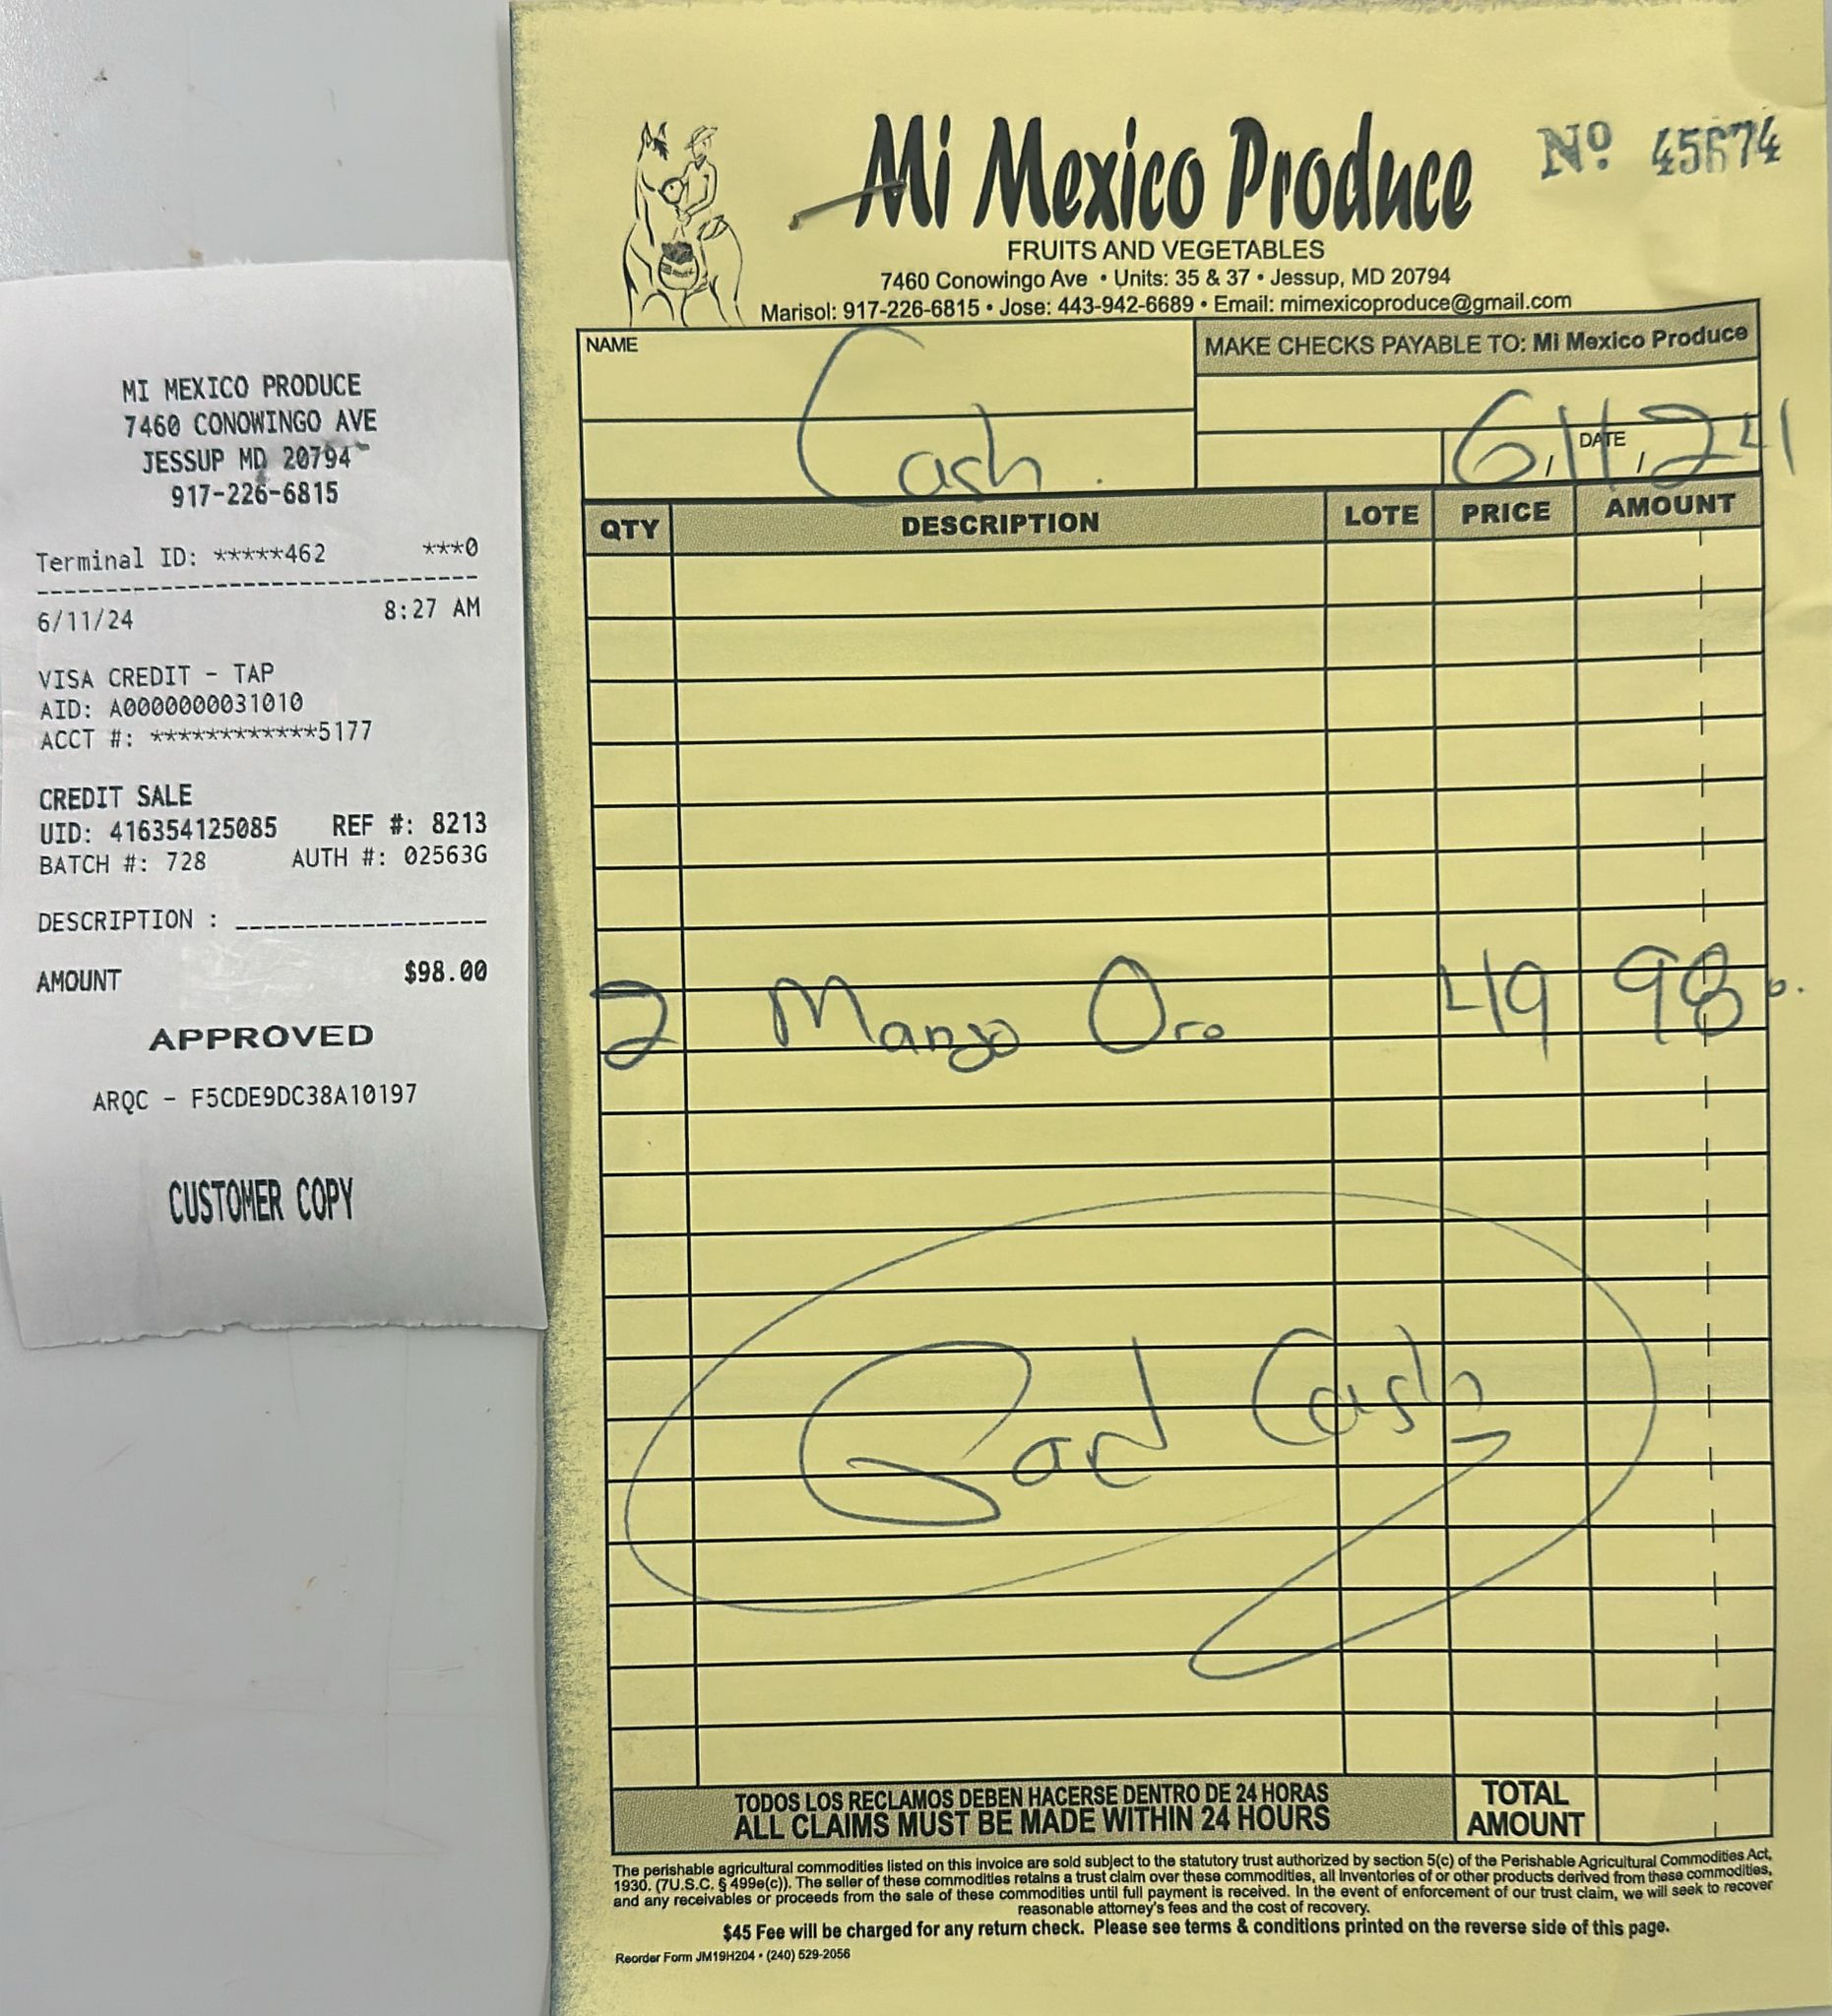 MI MEXICO PRODUCE
7460 CONOWINGO AVE
JESSUP MD 20794
917-226-6815
Terminal ID: *****462 ***0
6/11/24 8:27 AM
VISA CREDIT - TAP
AID: A0000000031010
ACCT #: ************5177
CREDIT SALE
UID: 416354125085 REF #: 8213
BATCH #: 728 AUTH #: 02563G
DESCRIPTION :
AMOUNT $98.00
APPROVED
ARQC - F5CDE9DC38A10197
CUSTOMER COPY
Mi Mexico Produce
Nº 45674
FRUITS AND VEGETABLES
7460 Conowingo Ave • Units: 35 & 37 • Jessup, MD 20794
Marisol: 917-226-6815 • Jose: 443-942-6689 • Email: mimexicoproduce@gmail.com
NAME
Cash.
MAKE CHECKS PAYABLE TO: Mi Mexico Produce
DATE
6, 11, 24
QTY DESCRIPTION LOTE PRICE AMOUNT
2 Mango Oro 49 98
Paid Cash
TODOS LOS RECLAMOS DEBEN HACERSE DENTRO DE 24 HORAS
ALL CLAIMS MUST BE MADE WITHIN 24 HOURS
TOTAL
AMOUNT
The perishable agricultural commodities listed on this invoice are sold subject to the statutory trust authorized by section 5(c) of the Perishable Agricultural Commodities Act,
1930. (7U.S.C. § 499e(c)). The seller of these commodities retains a trust claim over these commodities, all Inventories of or other products derived from these commodities,
and any receivables or proceeds from the sale of these commodities until full payment is received. In the event of enforcement of our trust claim, we will seek to recover
reasonable attorney's fees and the cost of recovery.
$45 Fee will be charged for any return check. Please see terms & conditions printed on the reverse side of this page.
Reorder Form JM19H204 • (240) 529-2056